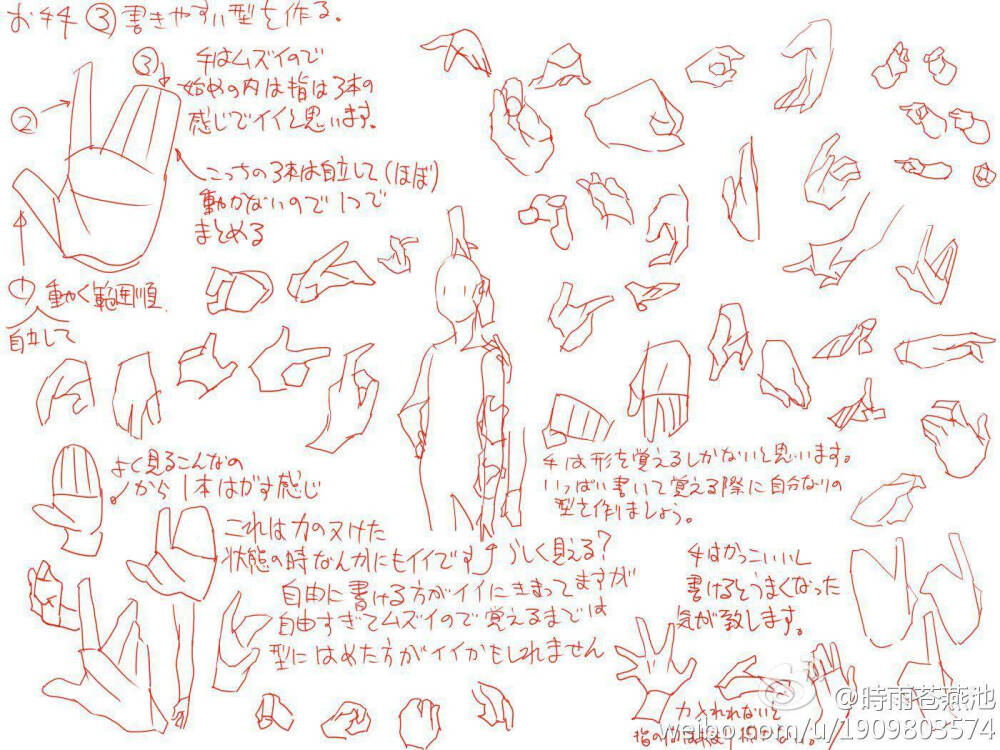 お手手 ③ 書きやすい型を作る。
③
手はムズイので
始めの内は指は3本の
感じでイイと思います。
②
こっちの3本は自立して(ほぼ)
動かないので1つで
まとめる
①
動く範囲順
自立して
よく見るこんなの
から1本はがす感じ
これは力のヌけた
状態の時なんかにもイイです
らしく見える?
自由に書ける方がイイにきまってますが
自由すぎてムズイので覚えるまでは
型にはめた方がイイかもしれません
手は形を覚えるしかないと思います。
いっぱい書いて覚える際に自分なりの
型を作りましょう。
手はかっこいいし
書けるとうまくなった
気が致します。
力入れないと
指の
@時雨苍燕池
weibo.com/u/1909803574